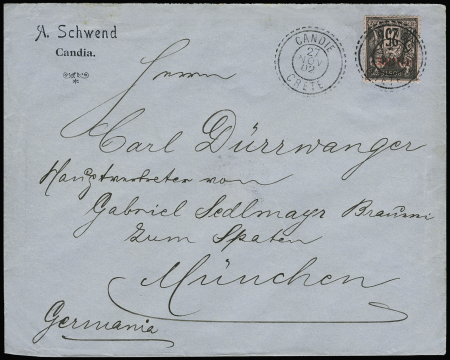 A. Schwend
Candia.
CANDIE
27
NOV
02
CRETE
25
Herrn
Carl Dürrwanger
Hauptvertreter von
Gabriel Sedlmayr Brauerei
zum Spaten
München
Germania